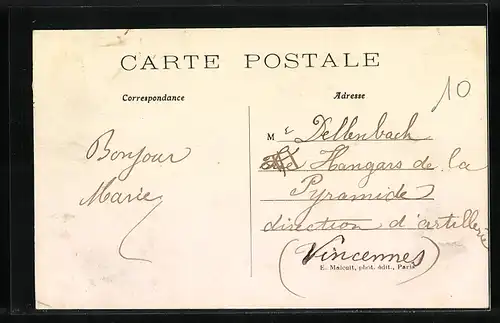 CARTE POSTALE
Correspondance
Adresse
10
Bonjour
Marie
M r Dellenbach
Hangars de la
Pyramide
direction d'artillerie
(Vincennes)
E. Malcuit, phot. édit., Paris